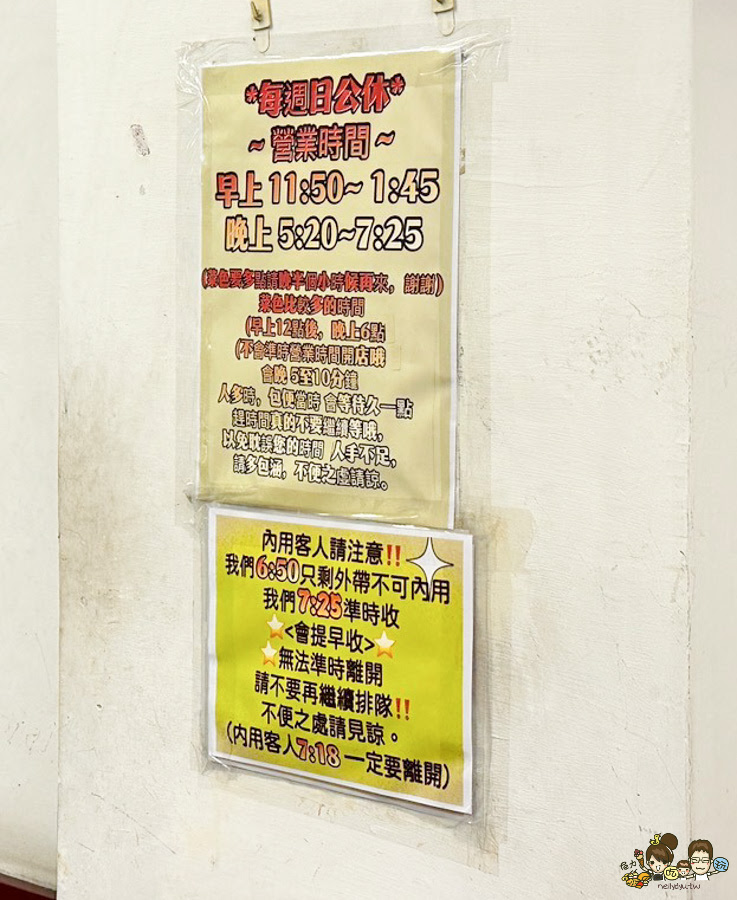 *每週日公休*
~ 營業時間 ~
早上 11:50~ 1:45
晚上 5:20~7:25
(菜色要多點請晚半個小時候再來，謝謝)
菜色比較多的時間
(早上12點後，晚上6點
(不會準時營業時間開店哦
會晚 5至10分鐘
人多時，包便當時 會等待久一點
趕時間真的不要繼續等哦，
以免耽誤您的時間 人手不足，
請多包涵，不便之虛請諒。
內用客人請注意‼️
我們6:50只剩外帶不可內用
我們7:25準時收
⭐<會提早收>⭐
⭐無法準時離開
請不要再繼續排隊‼️
不便之處請見諒。
(內用客人7:18 一定要離開)
neilyeyu.tw